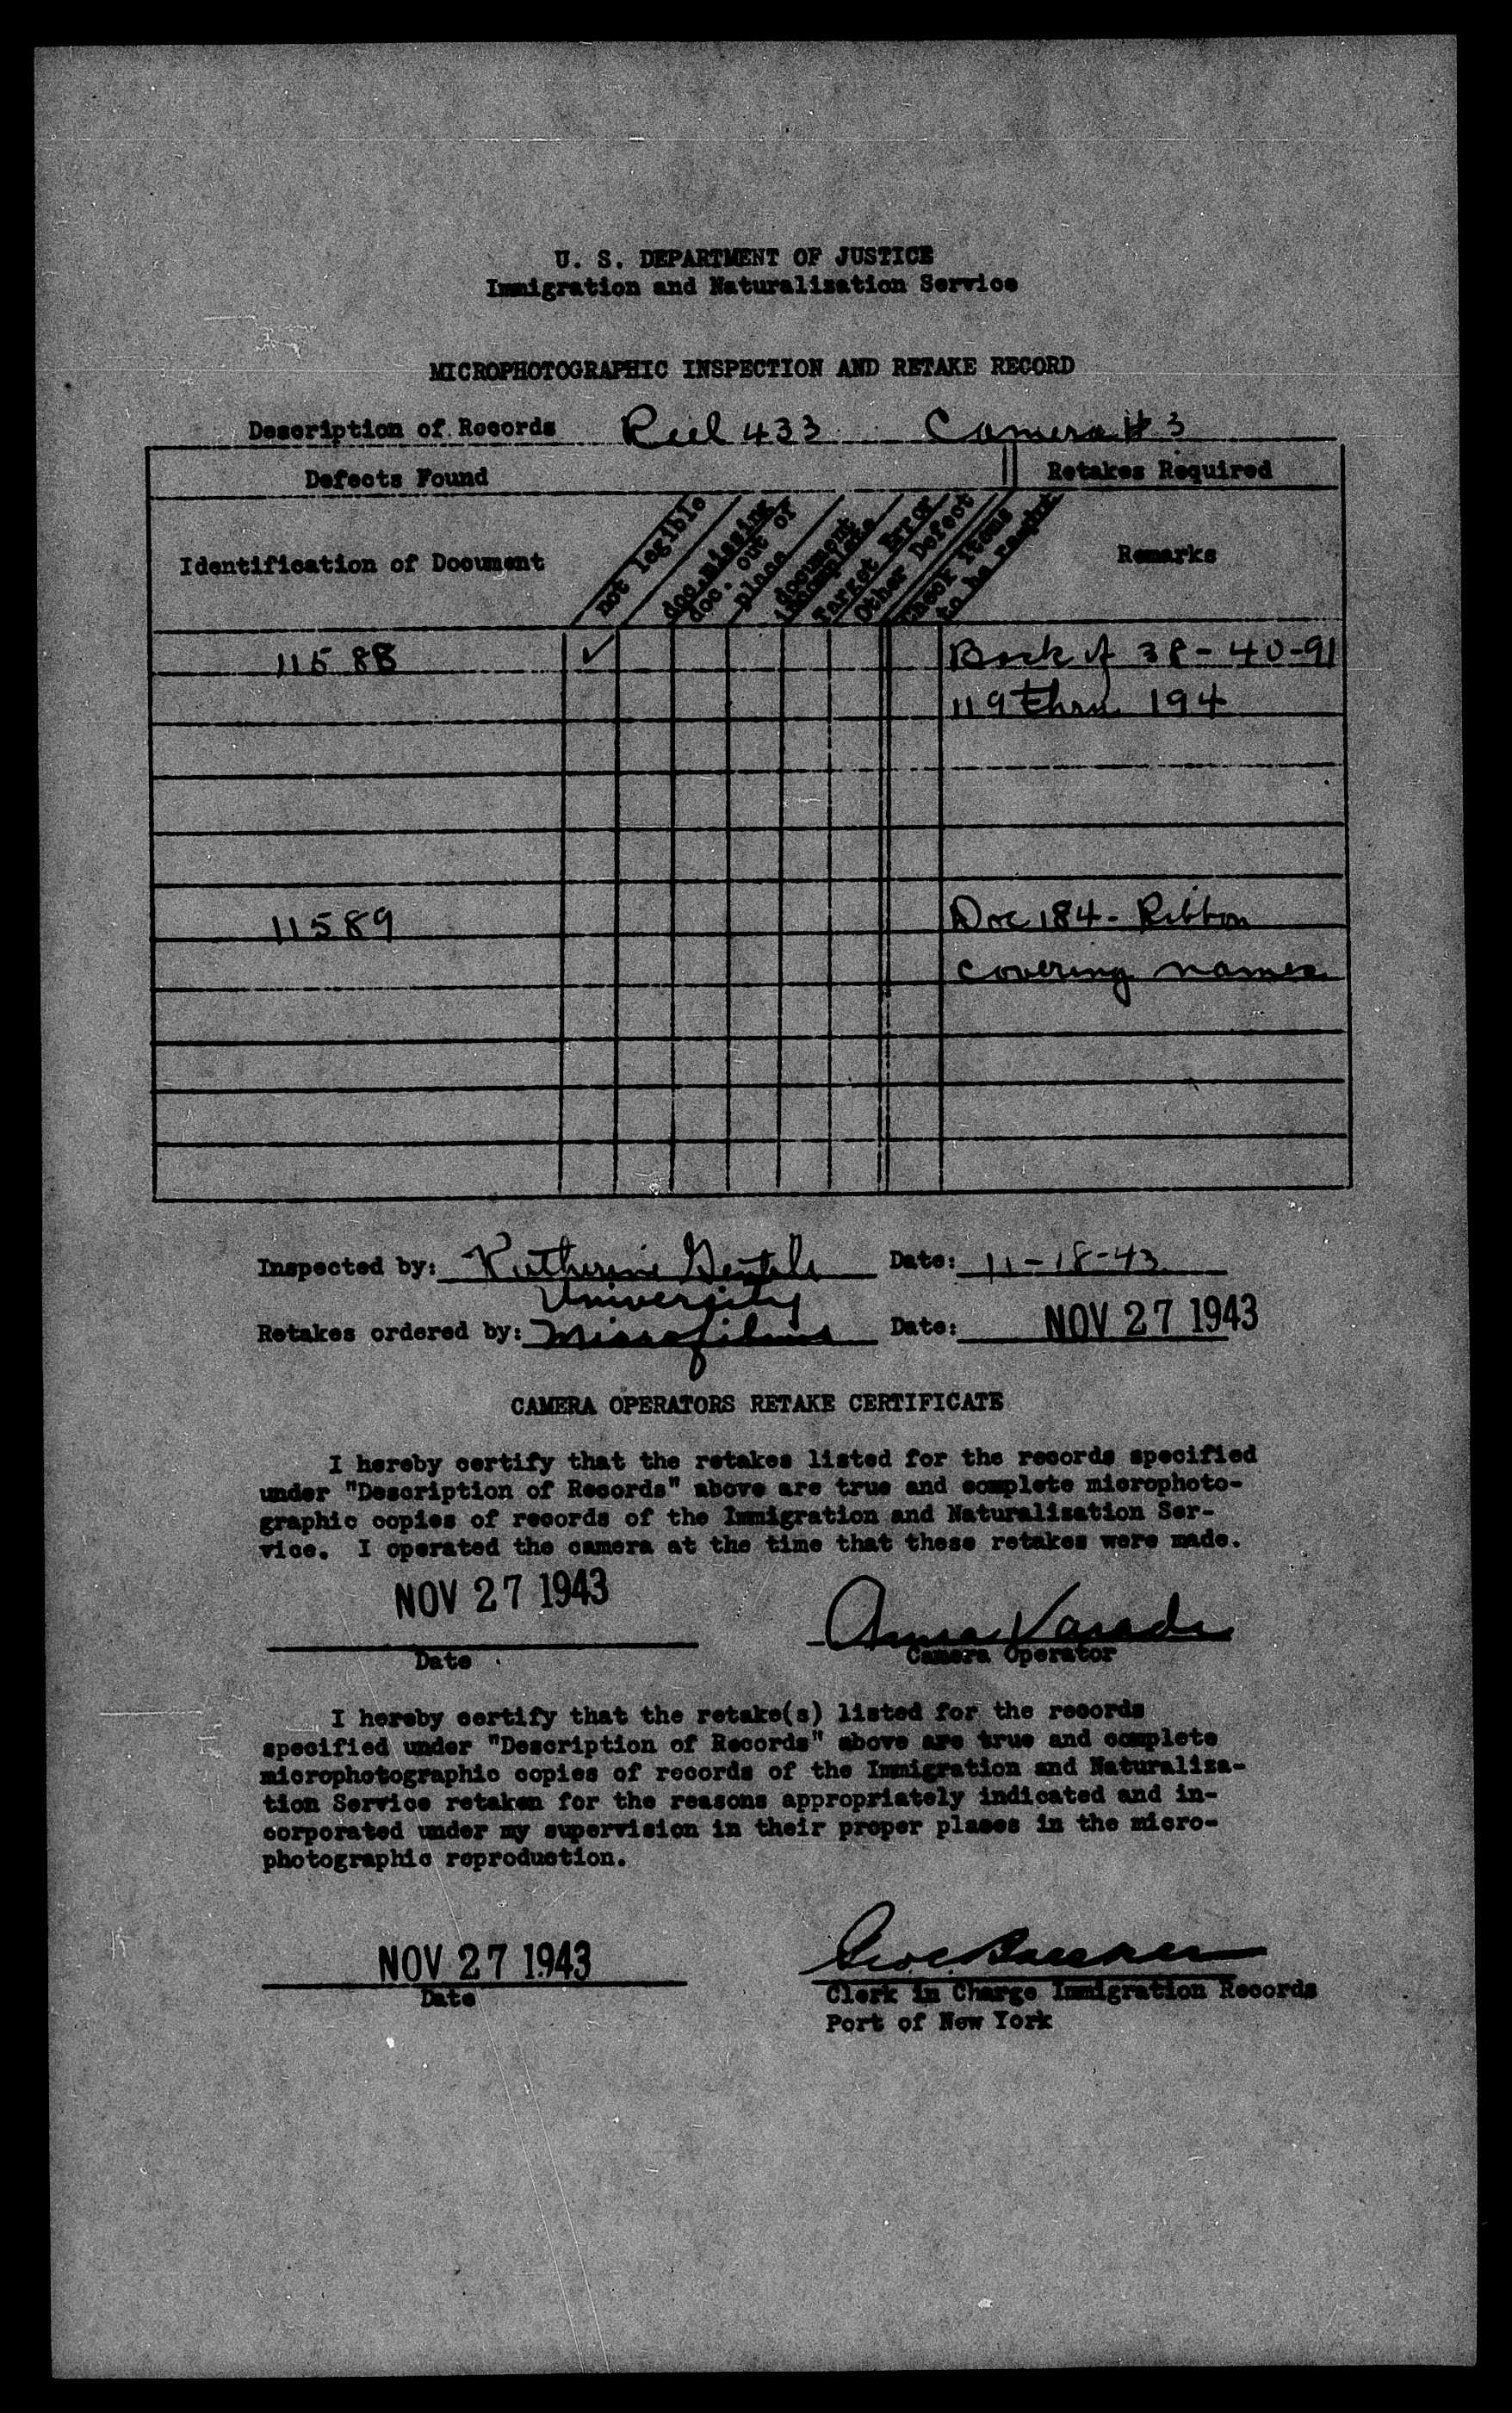 U. S. DEPARTMENT OF JUSTICE
Immigration and Naturalization Service
MICROPHOTOGRAPHIC INSPECTION AND RETAKE RECORD
Description of Records Reel 433 Camera # 3
Defects Found Retakes Required
Identification of Document not legible doc. missing doc. out of place document incomplete Target Error Other Defect Check items to be Remarks
11588 ✓ Back of 38-40-91
119 thru 194
11589 Doc 184- Ribbon
covering names
Inspected by: Katherine Date: 11-18-43
University
Retakes ordered by: Microfilms Date: NOV 27 1943
CAMERA OPERATORS RETAKE CERTIFICATE
I hereby certify that the retakes listed for the records specified
under "Description of Records" above are true and complete microphoto-
graphic copies of records of the Immigration and Naturalization Ser-
vice. I operated the camera at the time that these retakes were made.
NOV 27 1943 Anna
Date Camera Operator
I hereby certify that the retake(s) listed for the records
specified under "Description of Records" above are true and complete
microphotographic copies of records of the Immigration and Naturaliza-
tion Service retaken for the reasons appropriately indicated and in-
corporated under my supervision in their proper places in the micro-
photographic reproduction.
NOV 27 1943
Date Clerk in Charge Immigration Records
Port of New York